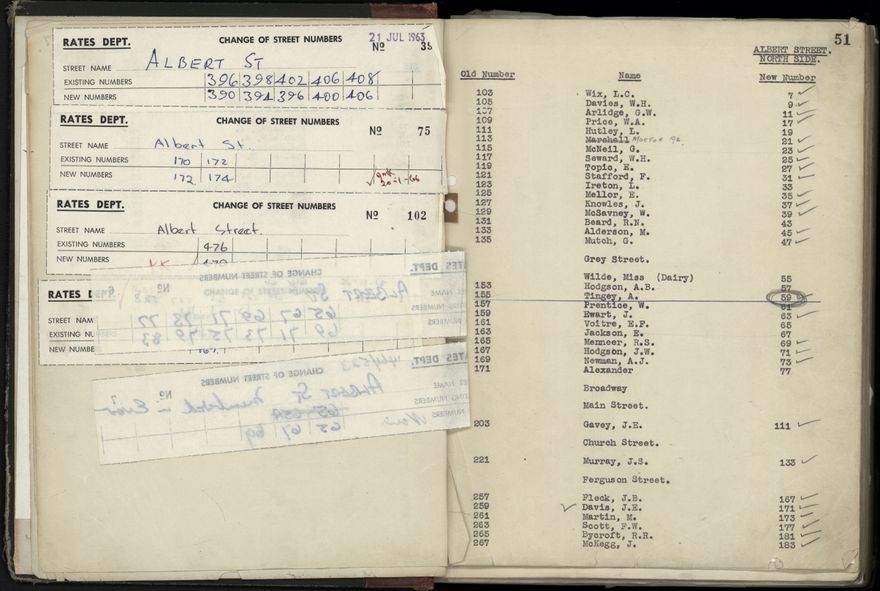 RATES DEPT. CHANGE OF STREET NUMBERS 21 JUL 1963
No 35
STREET NAME ALBERT ST
EXISTING NUMBERS 396 398 402 406 408
NEW NUMBERS 390 394 396 400 406
RATES DEPT. CHANGE OF STREET NUMBERS
No 75
STREET NAME Albert St.
EXISTING NUMBERS 170 172
NEW NUMBERS 172 174
RATES DEPT. CHANGE OF STREET NUMBERS
No 102
STREET NAME Albert Street.
EXISTING NUMBERS 476
NEW NUMBERS
CHANGE OF STREET NUMBERS
RATES D
ALBERT ST
STREET NAM
65 67 69 71 73 77
EXISTING NU
69 71 73 75 79 83
NEW NUMBE
CHANGE OF STREET NUMBERS
No 7
ALBERT ST Numbered in Error
65 67 69
51
ALBERT STREET.
NORTH SIDE.
Old Number Name New Number
103 Wix, L.C. 7
105 Davies, W.H. 9
107 Arlidge, G.W. 11
109 Price, W.A. 17
111 Hutley, L. 19
113 Marshall 21
115 McNeil, G. 23
117 Seward, W.H. 25
119 Topic, E. 27
121 Stafford, F. 31
123 Ireton, L. 33
125 Mellor, E. 35
127 Knowles, J. 37
129 McSavney, W. 39
131 Beard, R.N. 43
133 Alderson, M. 45
135 Mutch, G. 47
Grey Street.
Wilde, Miss (Dairy) 55
153 Hodgson, A.B. 57
155 Tingey, A. 59
157 Prentice, W. 61
159 Ewart, J. 63
161 Voitre, E.F. 65
163 Jackson, E. 67
165 Menneer, R.S. 69
167 Hodgson, J.W. 71
169 Newman, A.J. 73
171 Alexander 77
Broadway
Main Street.
203 Gavey, J.E. 111
Church Street.
221 Murray, J.S. 133
Ferguson Street.
257 Fleck, J.B. 167
259 Davis, J.E. 171
261 Martin, M. 173
263 Scott, F.W. 177
265 Bycroft, R.R. 181
267 McKegg, J. 183